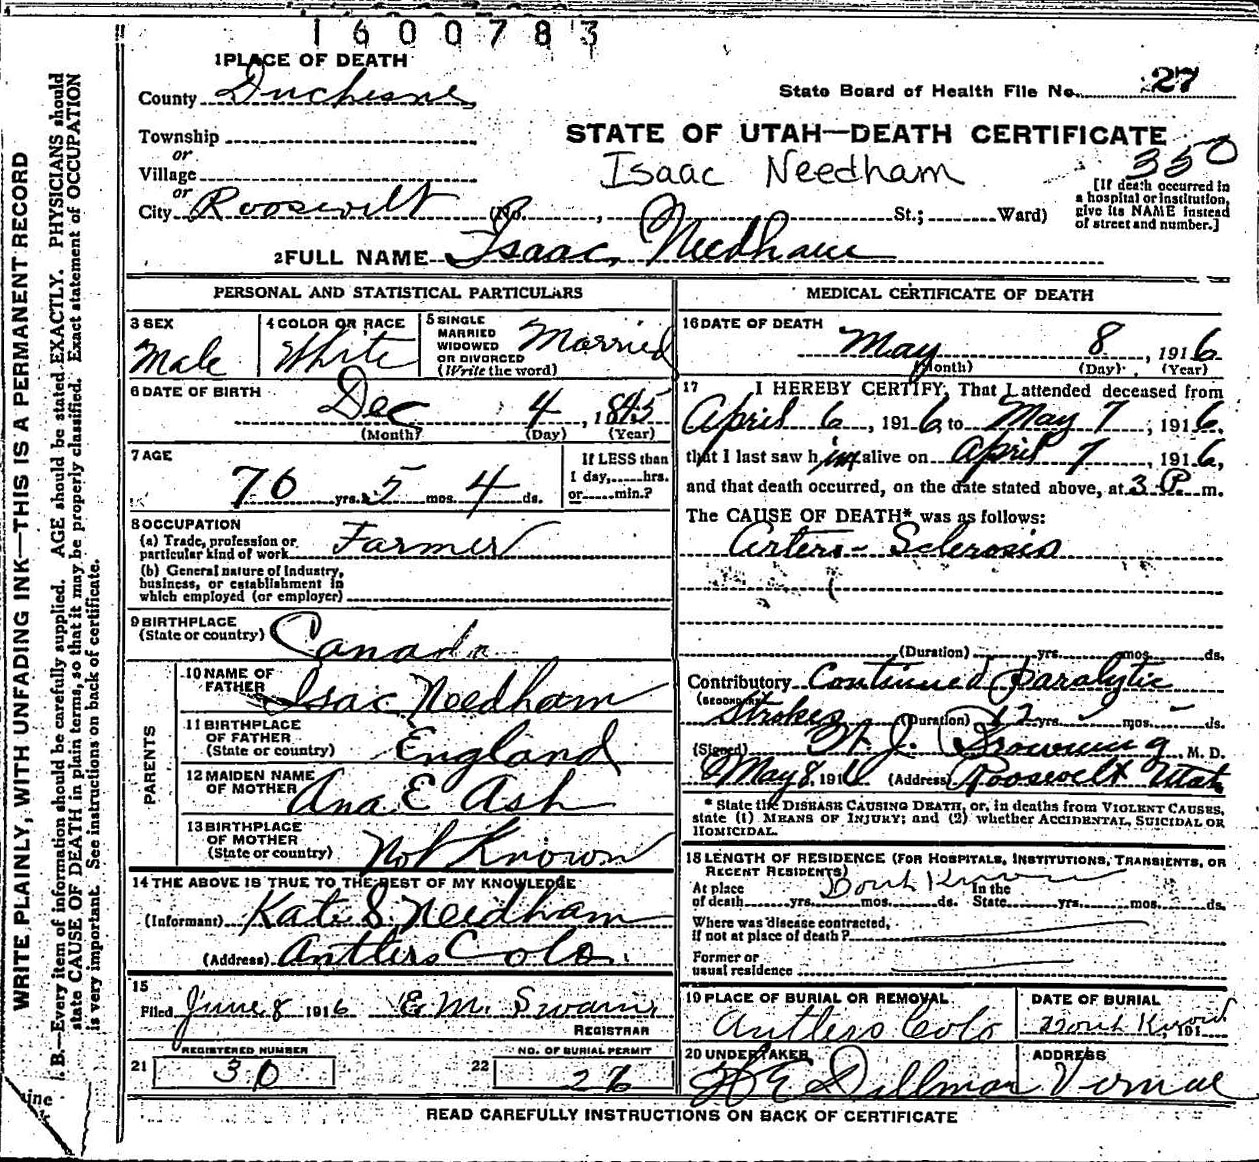 1600783
1 PLACE OF DEATH
County Duchesne
State Board of Health File No. 27
Township
or
Village
or
City Roosevelt (No. , St.; Ward)
STATE OF UTAH—DEATH CERTIFICATE
Isaac Needham
350
[If death occurred in
a hospital or institution,
give its NAME instead
of street and number.]
2 FULL NAME Isaac Needham
PERSONAL AND STATISTICAL PARTICULARS
3 SEX
Male
4 COLOR OR RACE
White
5 SINGLE
MARRIED
WIDOWED
OR DIVORCED
(Write the word)
Married
6 DATE OF BIRTH
Dec 4, 1845
(Month) (Day) (Year)
7 AGE
70 yrs. 5 mos. 4 ds.
If LESS than
1 day, hrs.
or min.?
8 OCCUPATION
(a) Trade, profession or
particular kind of work Farmer
(b) General nature of Industry,
business, or establishment in
which employed (or employer)
9 BIRTHPLACE
(State or country) Canada
PARENTS
10 NAME OF
FATHER Isac Needham
11 BIRTHPLACE
OF FATHER
(State or country) England
12 MAIDEN NAME
OF MOTHER Ana E Ash
13 BIRTHPLACE
OF MOTHER
(State or country) Not Known
14 THE ABOVE IS TRUE TO THE BEST OF MY KNOWLEDGE
(Informant) Kate S. Needham
(Address) Antlers Colo.
15
Filed June 8 1916 E. M. Swain
REGISTRAR
21 REGISTERED NUMBER
30
22 NO. OF BURIAL PERMIT
26
MEDICAL CERTIFICATE OF DEATH
16 DATE OF DEATH
May 8, 1916
(Month) (Day) (Year)
17 I HEREBY CERTIFY, That I attended deceased from
April 6, 1916, to May 7, 1916,
that I last saw him alive on April 7, 1916,
and that death occurred, on the date stated above, at 3 P. m.
The CAUSE OF DEATH* was as follows:
Arterio-Sclerosis
(Duration) yrs. mos. ds.
Contributory Continued Paralytic
(SECONDARY) Strokes (Duration) 12 yrs. - mos. - ds.
(Signed) J. Browning M. D.
May 8, 1916 (Address) Roosevelt Utah
* State the DISEASE CAUSING DEATH, or, in deaths from VIOLENT CAUSES,
state (1) MEANS OF INJURY; and (2) whether ACCIDENTAL, SUICIDAL OR
HOMICIDAL.
18 LENGTH OF RESIDENCE (FOR HOSPITALS, INSTITUTIONS, TRANSIENTS, OR
RECENT RESIDENTS)
At place Dont Know In the
of death yrs. mos. ds. State yrs. mos. ds.
Where was disease contracted,
if not at place of death?
Former or
usual residence
19 PLACE OF BURIAL OR REMOVAL
Antlers Colo
DATE OF BURIAL
Dont Know, 191
20 UNDERTAKER
H E Dillman
ADDRESS
Vernal
READ CAREFULLY INSTRUCTIONS ON BACK OF CERTIFICATE
WRITE PLAINLY, WITH UNFADING INK—THIS IS A PERMANENT RECORD
B.—Every item of information should be carefully supplied. AGE should be stated EXACTLY. PHYSICIANS should
state CAUSE OF DEATH in plain terms, so that it may be properly classified. Exact statement of OCCUPATION
is very important. See instructions on back of certificate.